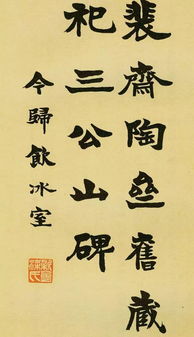 裴齋陶舊藏
祀三公山碑
今歸飲冰室